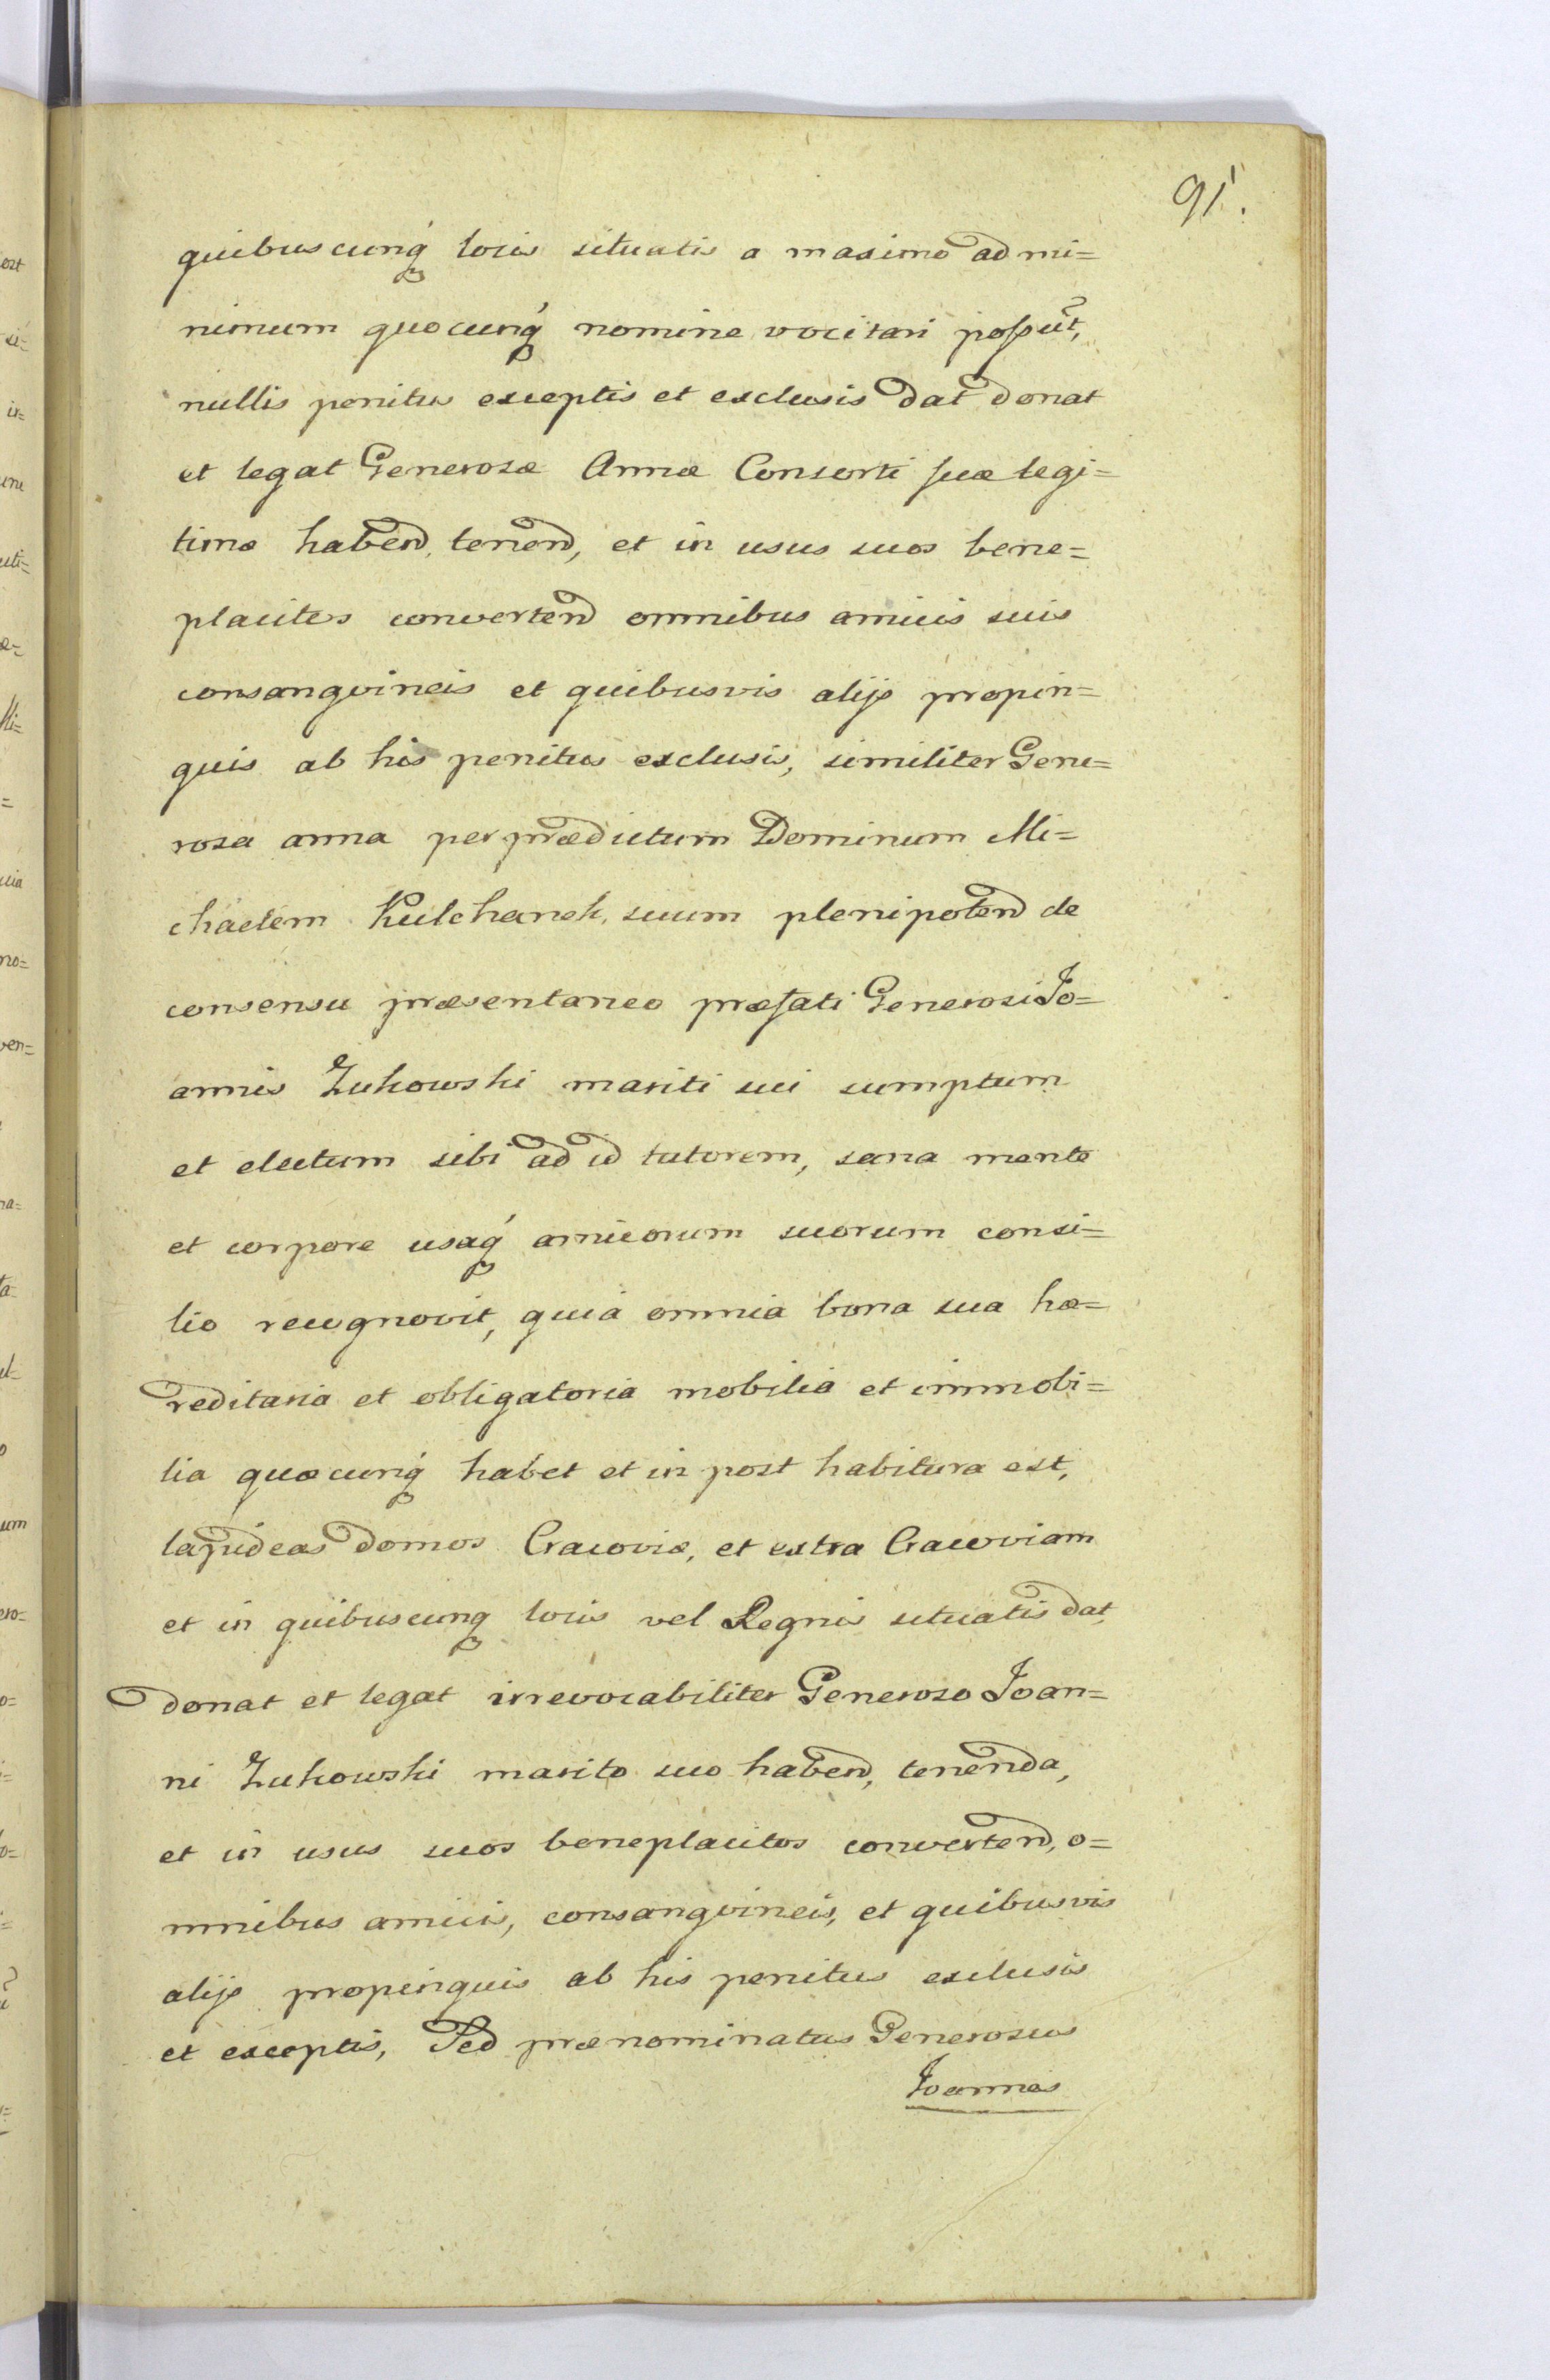 91.
quibuscunq́ locis situatis a maximo ad mi=
nimum quocunq́ nomine vocitari possūt,
nullis penitus exceptis et exclusis dat donat
et legat Generosæ Annæ Consorti suæ legi=
timæ habend, tenend, et in usus suos bene=
placitos convertend omnibus amicis suis
consangvineis et quibusvis alijs propin=
quis ab his penitus exclusis, similiter Gene=
rosa anna per prædictum Dominum Mi=
chäelem Kulchanek, suum plenipotend de
consensu præsentaneo præfati Generosi Jo=
annis Zukowski mariti sui sumptum
et electum sibi ad id tutorem, sana mente
et corpore usaq́ amicorum suorum consi=
lio recognovit, quia omnia bona sua hæ=
reditaria et obligatoria mobilia et immobi=
lia quæcunq́ habet et in post habitura est,
lapideas domos Cracoviæ, et extra Cracoviam
et in quibuscunq locis vel Regnis situatis dat,
donat et legat irrevocabiliter Generoso Joan=
ni Zukowski marito suo habend, tenenda,
et in usus suos beneplacitos convertend, o=
mnibus amicis, consangvineis, et quibusvis
alijs propinquis ab his penitus exclusis
et exceptis, Sed prænominatus Generosus
Joannes